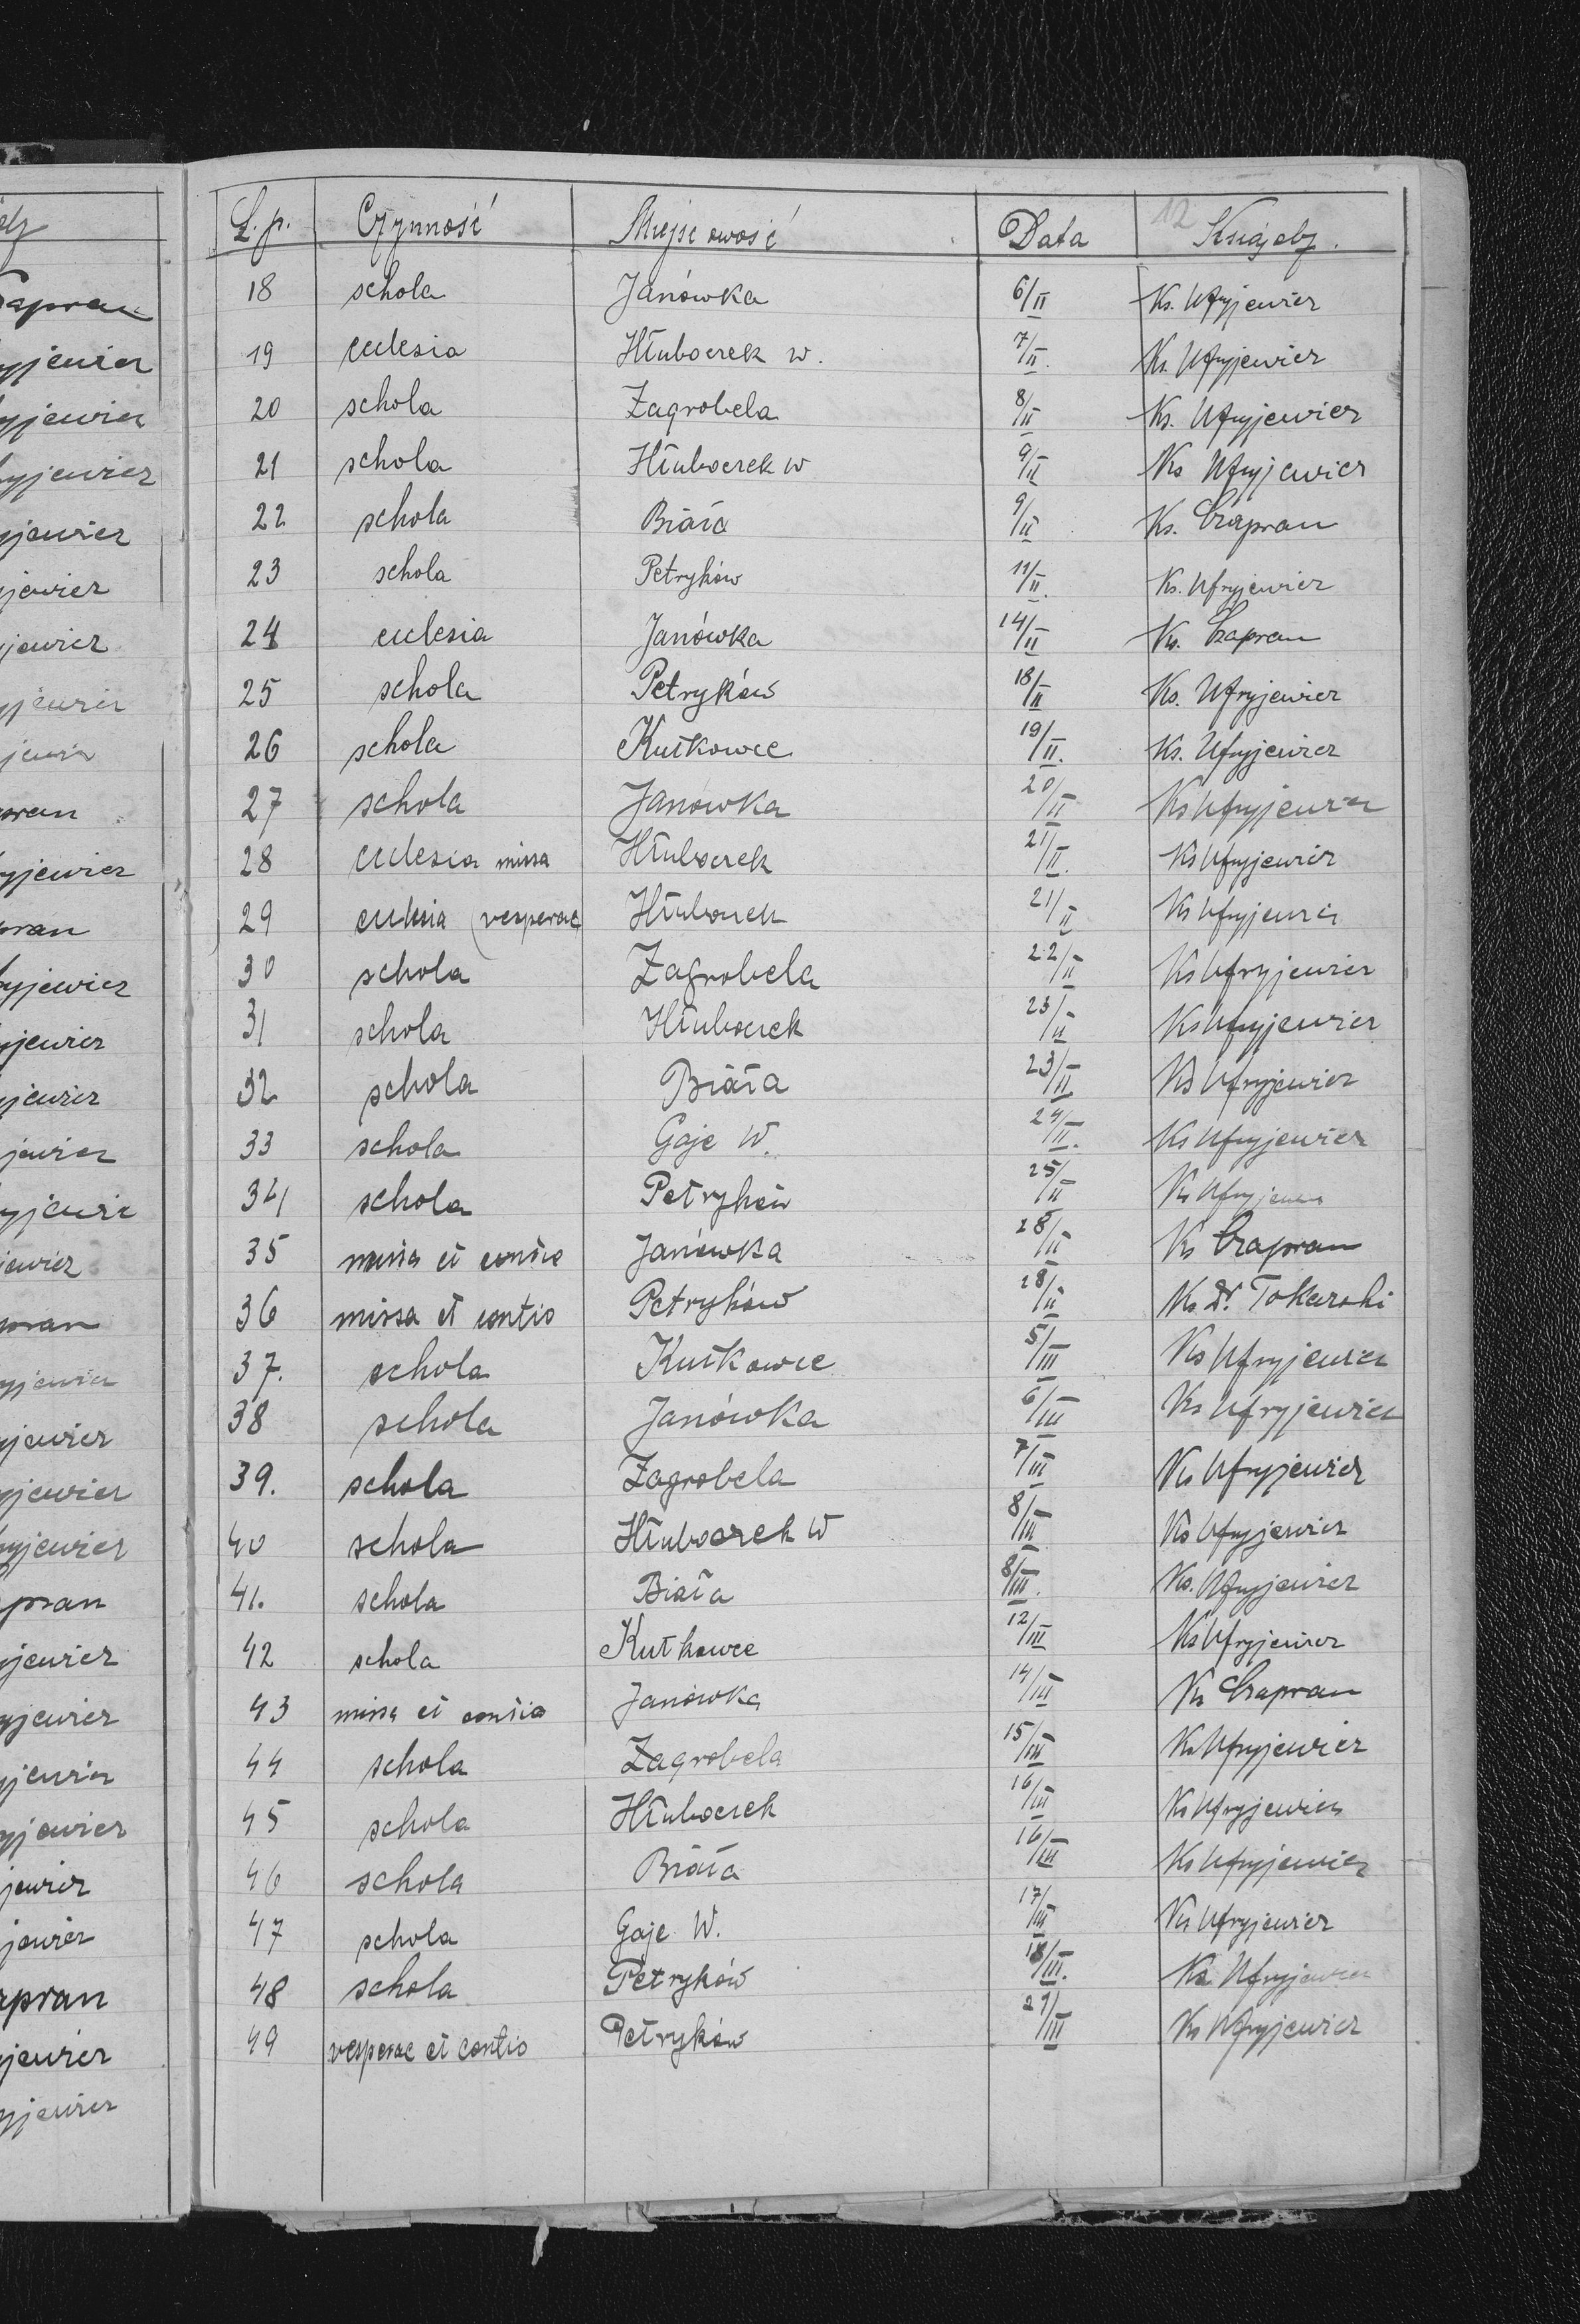 12
L.p. Czynność Miejscowość Data Ksiądz.
18 schola Janówka 6/II Ks. Ufryjewicz
19 eclesia Hłuboczek w. 7/II. Ks. Ufryjewicz
20 schola Zagrobela 8/II Ks. Ufryjewicz
21 schola Hłuboczek w 9/II Ks Ufryjewicz
22 schola Biała 9/II Ks. Czapran
23 schola Petryków 11/II. Ks. Ufryjewicz
24 eclesia Janówka 14/II Ks. Czapran
25 schola Petryków 18/II Ks. Ufryjewicz
26 schola Kutkowce 19/II. Ks. Ufryjewicz
27 schola Janowka 20/II Ks Ufryjewicz
28 eclesia missa Hłuboczek 21/II. Ks Ufryjewicz
29 eclesia (vesperae Hłuboczek 21/II Ks Ufryjewicz
30 schola Zagrobela 22/II Ks Ufryjewicz
31 schola Hłuboczek 23/II Ks Ufryjewicz
32 schola Biała 23/II Ks Ufryjewicz
33 schola Gaje W. 24/II. Ks Ufryjewicz
34 schola Petryków 25/II Ks Ufryjewicz
35 missa et contio Janówka 28/II Ks Czapran
36 missa et contio Petryków 28/II Ks. Dr. Tokarski
37. schola Kutkowce 5/III Ks Ufryjewicz
38 schola Janówka 6/III Ks Ufryjewicz
39. schola Zagrobela 7/III Ks Ufryjewicz
40 schola Hłuboczek W 8/III Ks Ufryjewicz
41. schola Biała 8/III. Ks. Ufryjewicz
42 schola Kutkowce 12/III Ks Ufryjewicz
43 missa et contio Janówka 14/III Ks Czapran
44 schola Zagrobela 15/III Ks Ufryjewicz
45 schola Hłuboczek 16/III Ks Ufryjewicz
46 schola Biała 16/III Ks Ufryjewicz
47 schola Gaje W. 17/III Ks Ufryjewicz
48 schola Petryków 18/III. Ks Ufryjewicz
49 vesperae et contio Petryków 21/III Ks Ufryjewicz